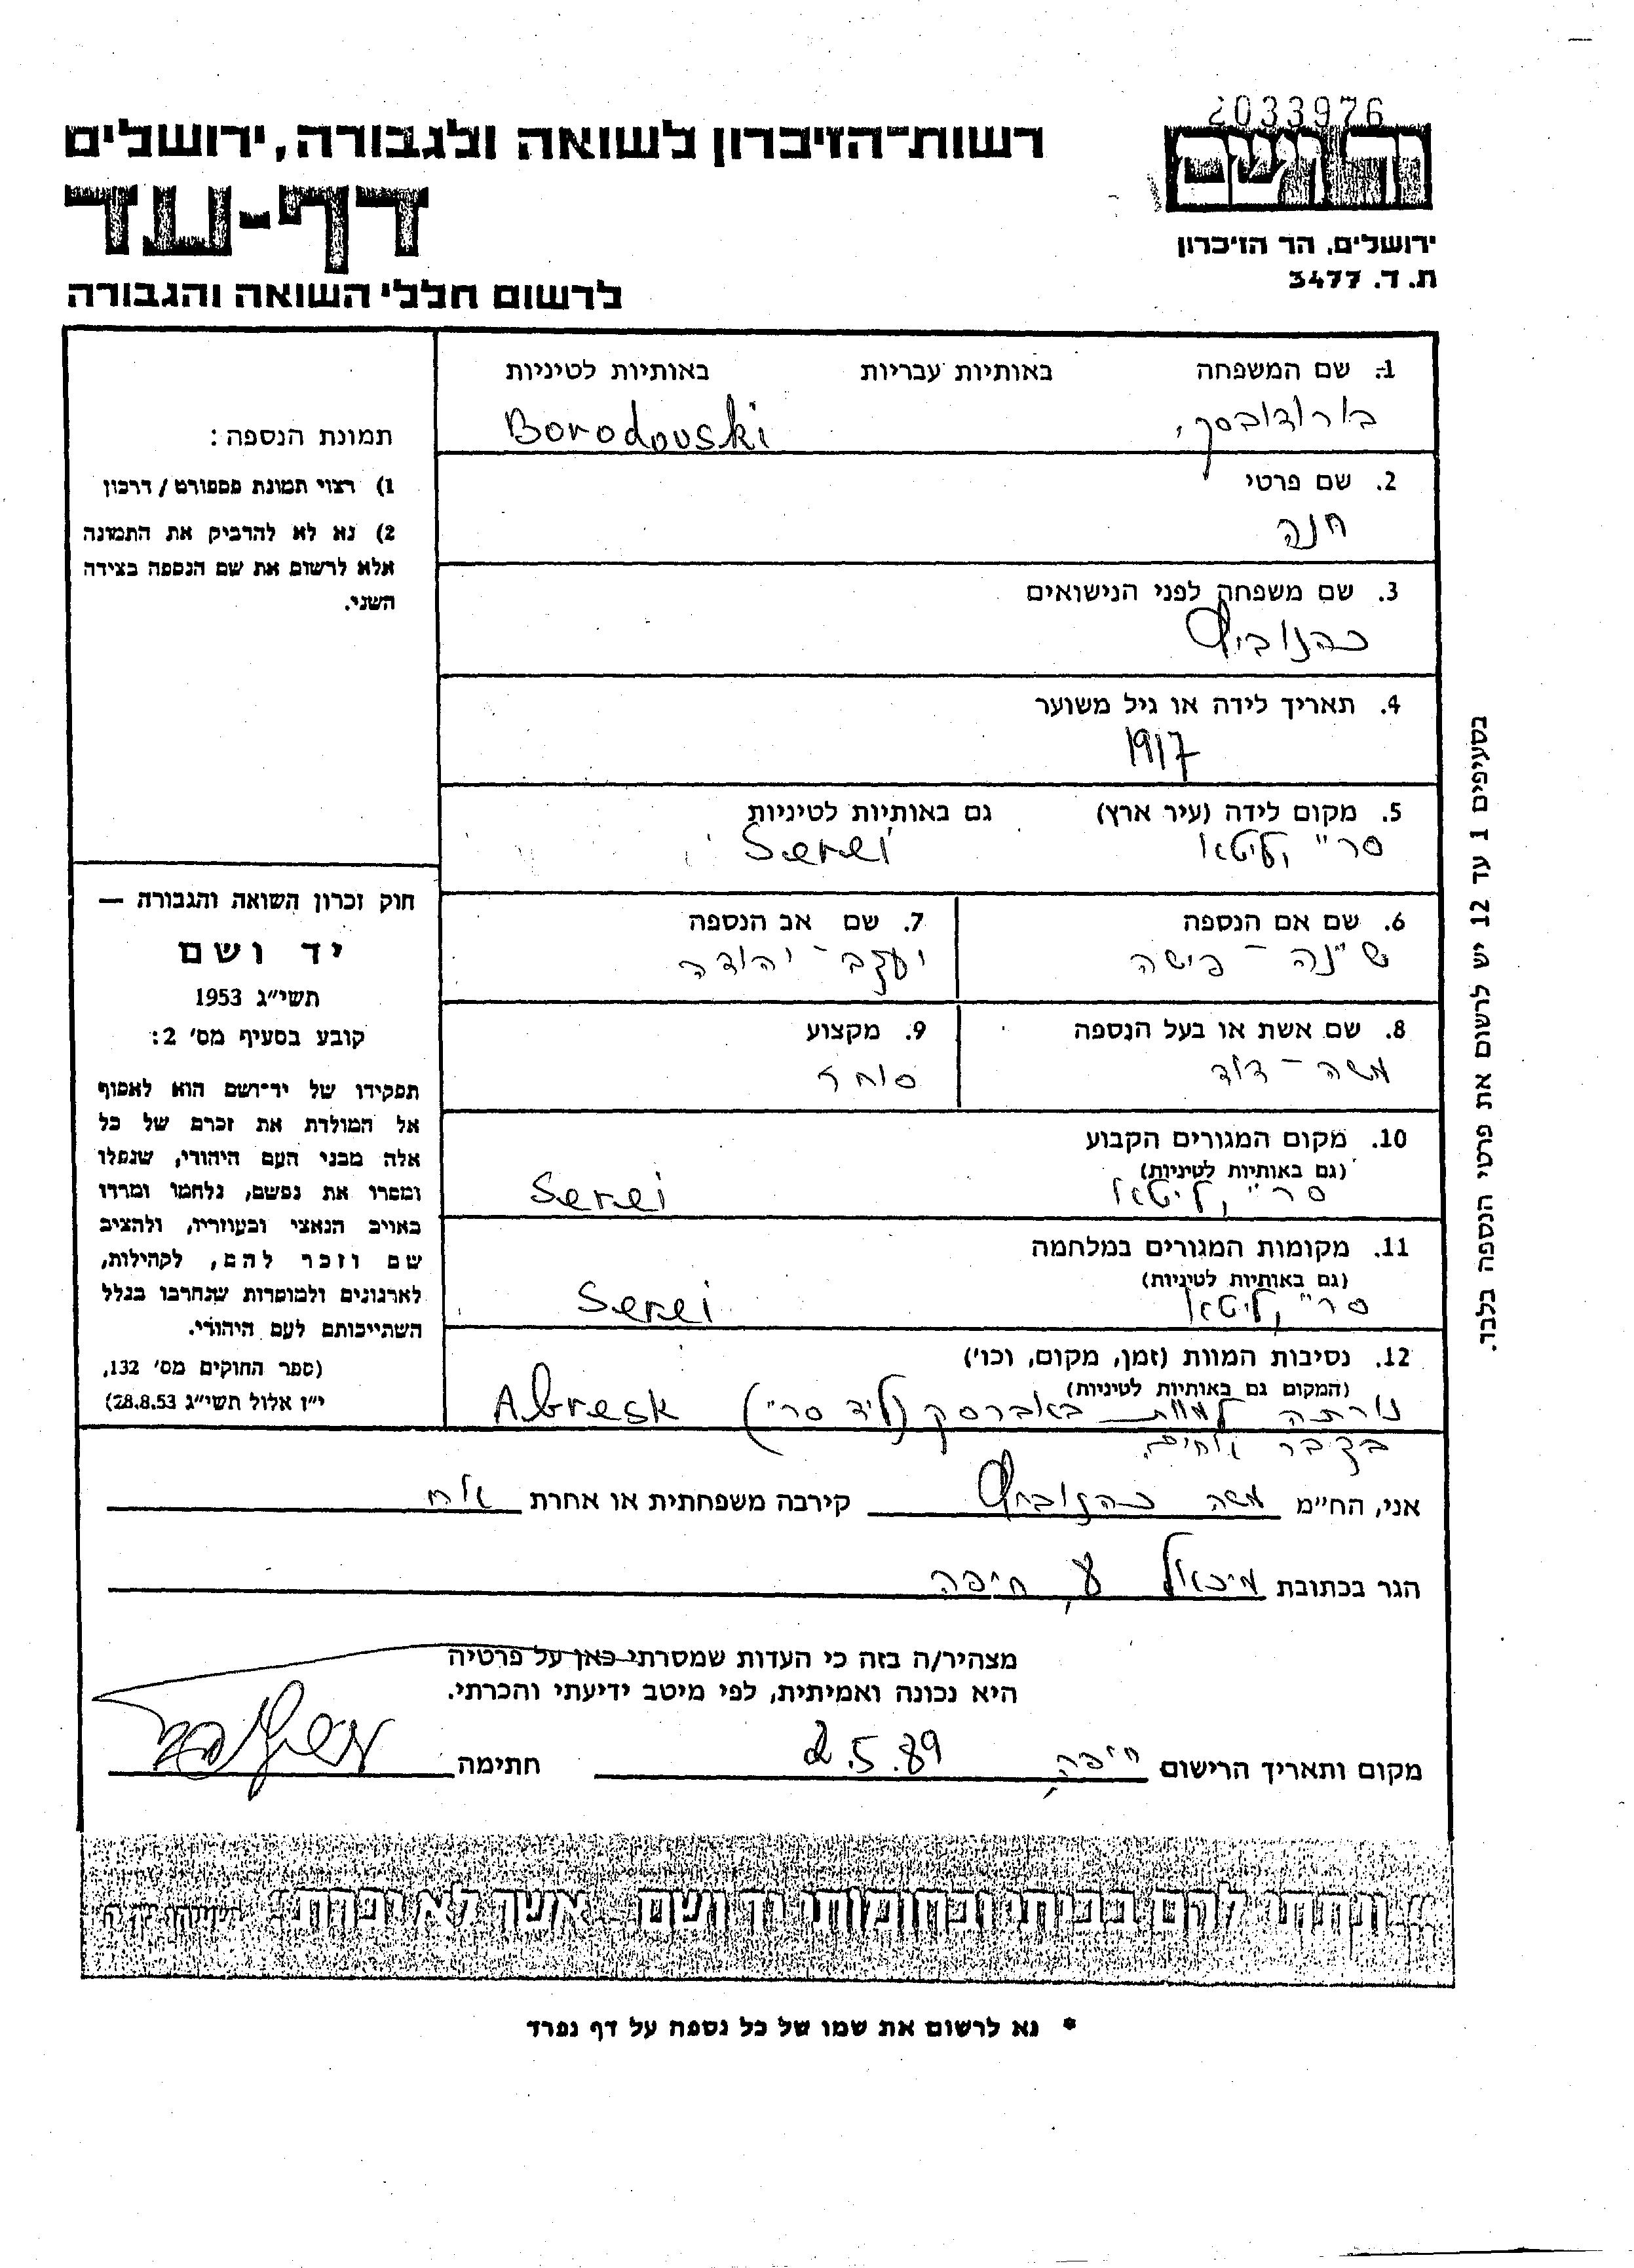 2033976
יד ושם
ירושלים, הר הזיכרון
ת. ד. 3477
רשות־הזיכרון לשואה ולגבורה, ירושלים
דף-עד
לרשום חללי השואה והגבורה
1. שם המשפחה באותיות עבריות באותיות לטיניות
בורודובסקי Borodovski
2. שם פרטי
חנה
3. שם משפחה לפני הנישואים
כהנוביץ
4. תאריך לידה או גיל משוער
1917
5. מקום לידה (עיר ארץ) גם באותיות לטיניות
סריי, ליטא Serei
6. שם אם הנספה 7. שם אב הנספה
שינה - פישה יעקב - יהודה
8. שם אשת או בעל הנספה 9. מקצוע
משה - דוד סוחר
10. מקום המגורים הקבוע
(גם באותיות לטיניות)
סריי, ליטא Serei
11. מקומות המגורים במלחמה
(גם באותיות לטיניות)
סריי, ליטא Serei
12. נסיבות המוות (זמן, מקום, וכו')
(המקום גם באותיות לטיניות)
נורתה למוות באברסק (ליד סריי) Abresk
בקבר אחים.
תמונת הנספה:
1) רצוי תמונת פספורט / דרכון
2) נא לא להדביק את התמונה
אלא לרשום את שם הנספה בצידה
השני.
חוק זכרון השואה והגבורה —
יד ושם
תשי״ג 1953
קובע בסעיף מס׳ 2:
תפקידו של יד־ושם הוא לאסוף
אל המולדת את זכרם של כל
אלה מבני העם היהודי, שנפלו
ומסרו את נפשם, נלחמו ומרדו
באויב הנאצי ובעוזריו, ולהציב
שם וזכר להם, לקהילות,
לארגונים ולמוסדות שנחרבו בגלל
השתייכותם לעם היהודי.
(ספר החוקים מס׳ 132,
י״ז אלול תשי״ג 28.8.53)
בסעיפים 1 עד 12 יש לרשום את פרטי הנספה בלבד.
אני, הח״מ משה כהנוביץ קירבה משפחתית או אחרת אח
הגר בכתובת מיכאל חיפה
מצהיר/ה בזה כי העדות שמסרתי כאן על פרטיה
היא נכונה ואמיתית, לפי מיטב ידיעתי והכרתי.
מקום ותאריך הרישום חיפה, 2.5.89 חתימה
״...ונתתי להם בביתי ובחומותי יד ושם... אשר לא יכרת״ ישעיהו נו, ה
* נא לרשום את שמו של כל נספה על דף נפרד